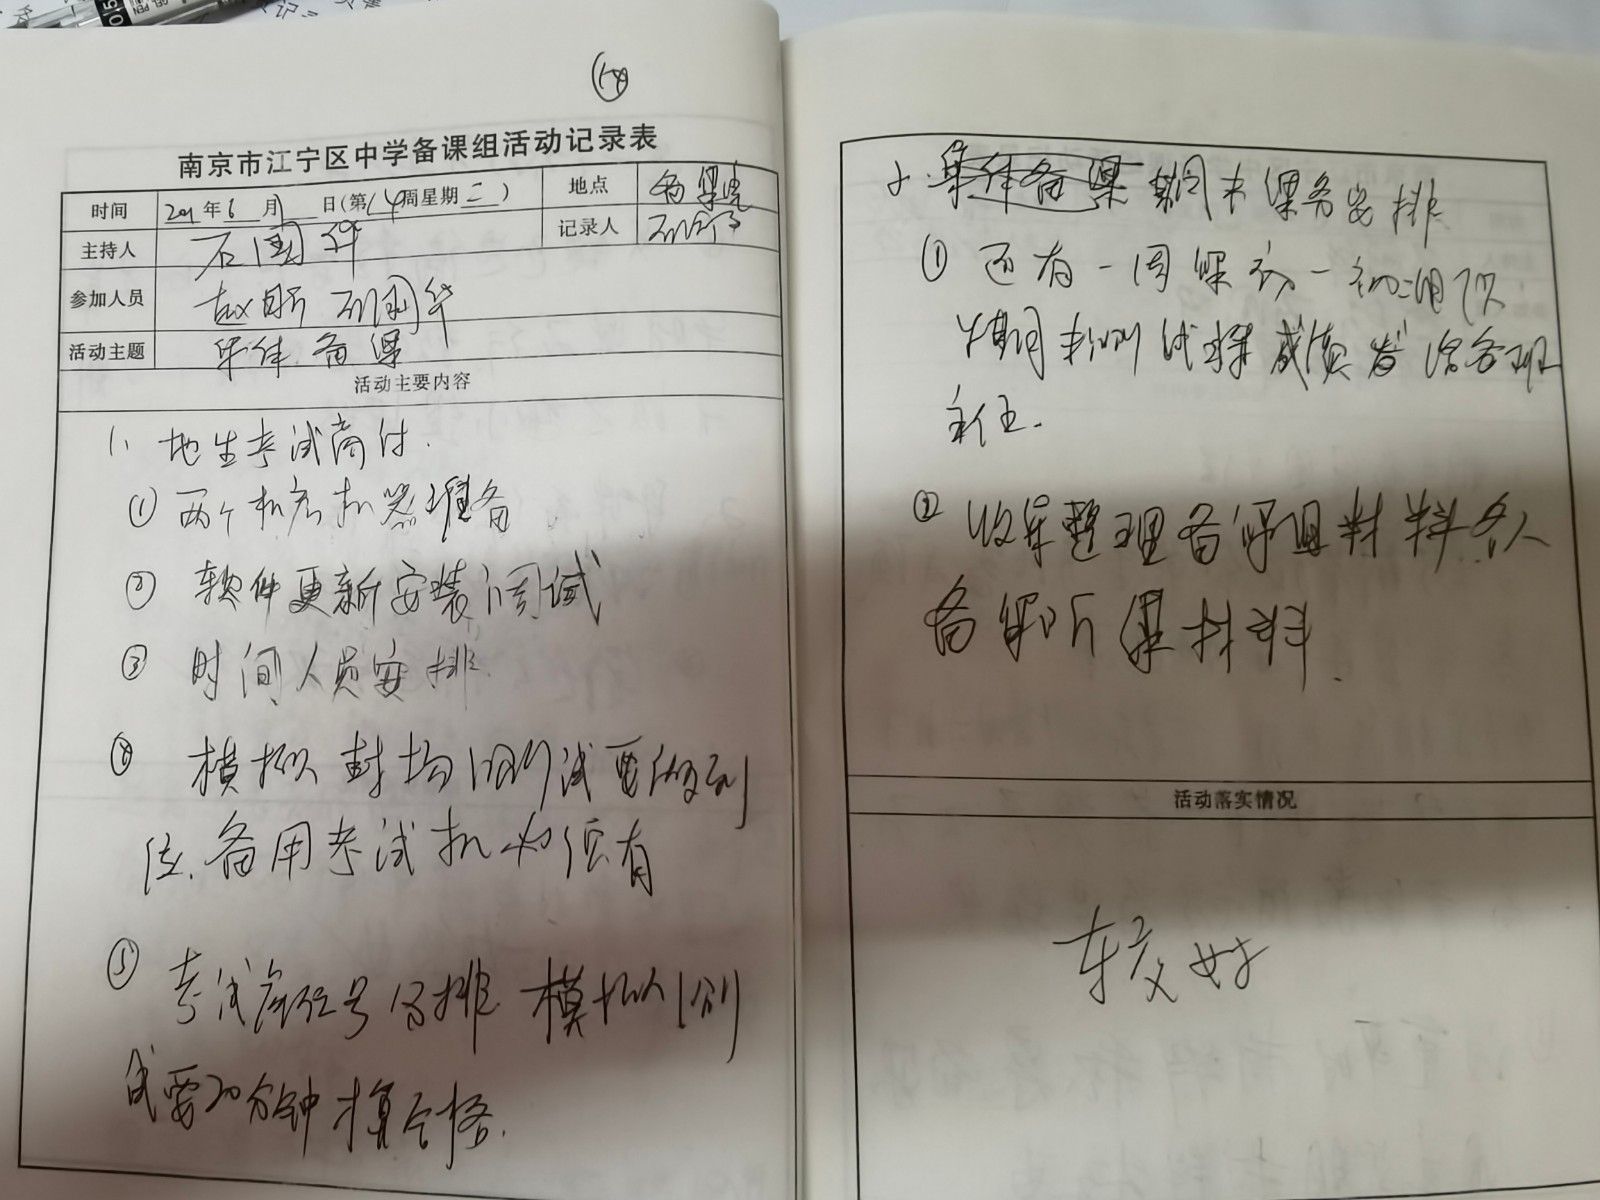 ⑭
南京市江宁区中学备课组活动记录表
时间 2021年6月1日(第14周星期二) 地点 备课室
主持人 石国华 记录人
参加人员 赵昕 石国华
活动主题 集体备课
活动主要内容
1、地生考试商讨.
① 两个机房机器准备
② 软件更新安装调试
③ 时间人员安排.
④ 模拟封场测试要做到
位.备用考试机必须有
⑤ 考试座位号安排 模拟测
试要20分钟才算合格.
2. 期末课务安排
① 还有一周课 初一初二
期末测试 成绩发给各班
主任.
② 收集整理备课组材料.个人
备课听课材料.
活动落实情况
较好